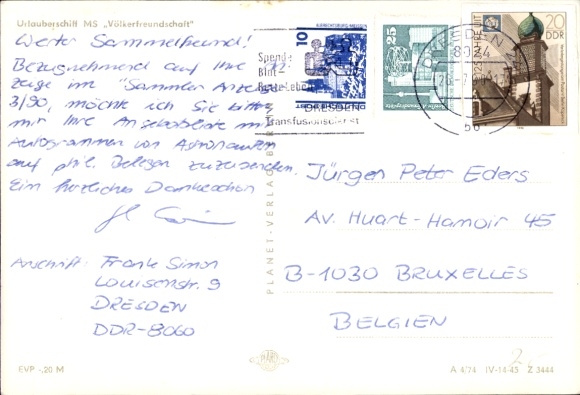 Urlauberschiff MS „Völkerfreundschaft"
Werter Sammelfreund!
Bezugnehmend auf Ihre An-
zeige im "Sammler Anzeiger
3/90, möchte ich Sie bitten
mir Ihre Angebotsliste mit
Autogrammen von Astronauten
auf phil. Belegen zuzusenden.
Ein herzliches Dankeschön
Anschrift: Frank Simon
Louisenstr. 9
DRESDEN
DDR-8060
EVP -,20 M
PLANET-VERLAG
Spende
Blut
Rette Leben
DRESDEN
Transfusionsdienst
10
25
20
DDR
8024
Jürgen Peter Eders
Av. Huart-Hamoir 45
B-1030 BRUXELLES
BELGIEN
A 4/74 IV-14-45 Z 3444